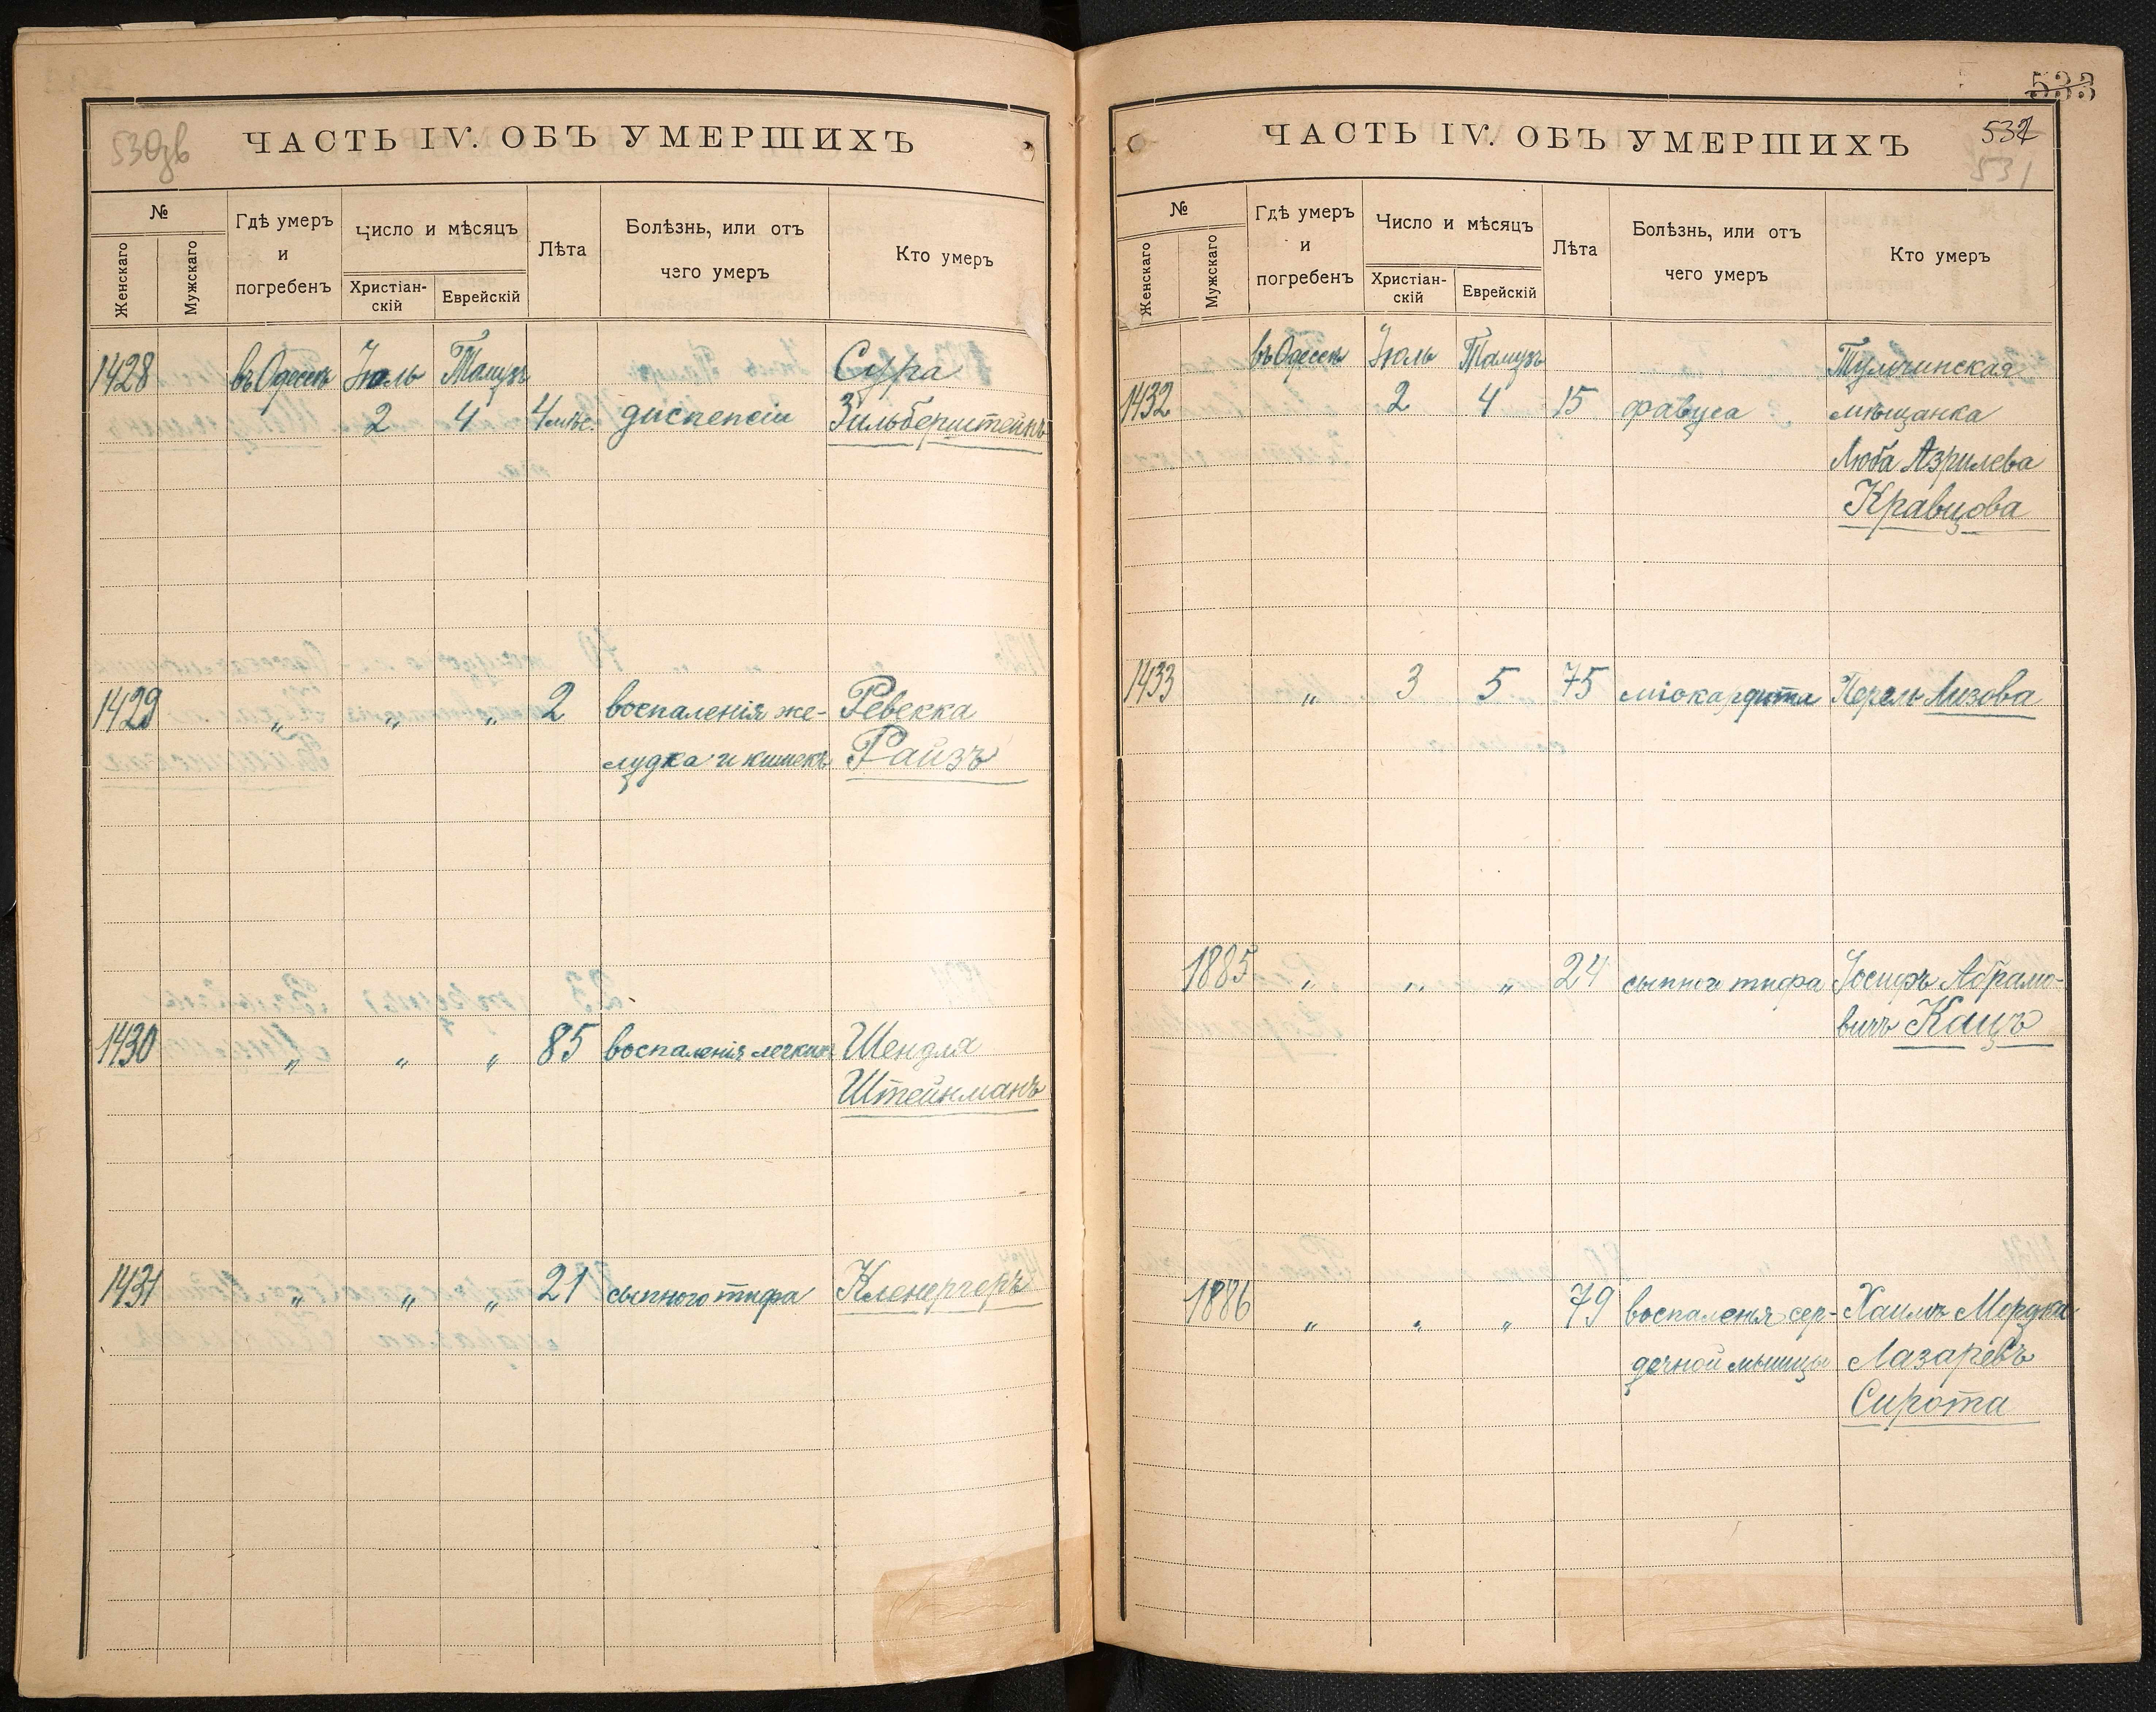 530зв
ЧАСТЬ IV. ОБЪ УМЕРШИХЪ
№
Женскаго
Мужскаго
Гдѣ умеръ
и
погребенъ
Число и мѣсяцъ
Христіан-
скій
Еврейскій
Лѣта
Болѣзнь, или отъ
чего умеръ
Кто умеръ
1428 въ Одессѣ Іюль Тамузъ Сура
2 4 4 мѣс. диспепсіи Зильберштейнъ
1429 „ „ „ 2 воспаленія же- Ревекка
лудка и кишекъ Райзъ
1430 „ „ „ 85 воспаленія легкихъ Шендля
Штейнманъ
1431 „ „ „ 21 сыпного тифа Кленергеръ
533
ЧАСТЬ IV. ОБЪ УМЕРШИХЪ
532
531
№
Женскаго
Мужскаго
Гдѣ умеръ
и
погребенъ
Число и мѣсяцъ
Христіан-
скій
Еврейскій
Лѣта
Болѣзнь, или отъ
чего умеръ
Кто умеръ
въ Одессѣ Іюль Тамузъ Тульчинская
1432 2 4 15 фавуса мѣщанка
Люба Азрилева
Кравцова
1433 „ 3 5 75 міокардита Перель Лизова
1885 „ „ „ 24 сыпного тифа Іосифъ Абрамо-
вичъ Кацъ
1886 „ „ „ 79 воспаленія сер- Хаимъ Мордко
дечной мышцы Лазаревъ
Сирота